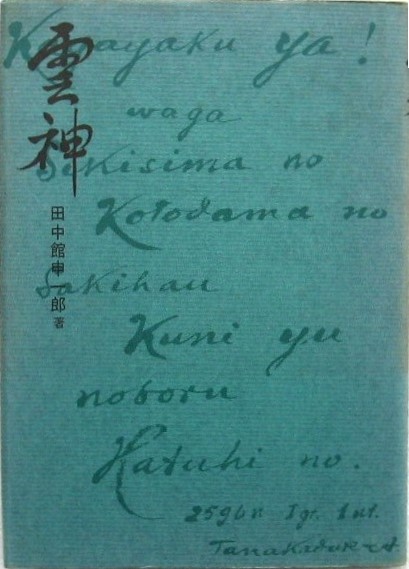 雲神
田中館申一郎著
Kagayaku ya!
waga
Sikisima no
Kotodama no
Sakihau
Kuni yu
noboru
Hatuhi no.
2596n 1gt. 1nt.